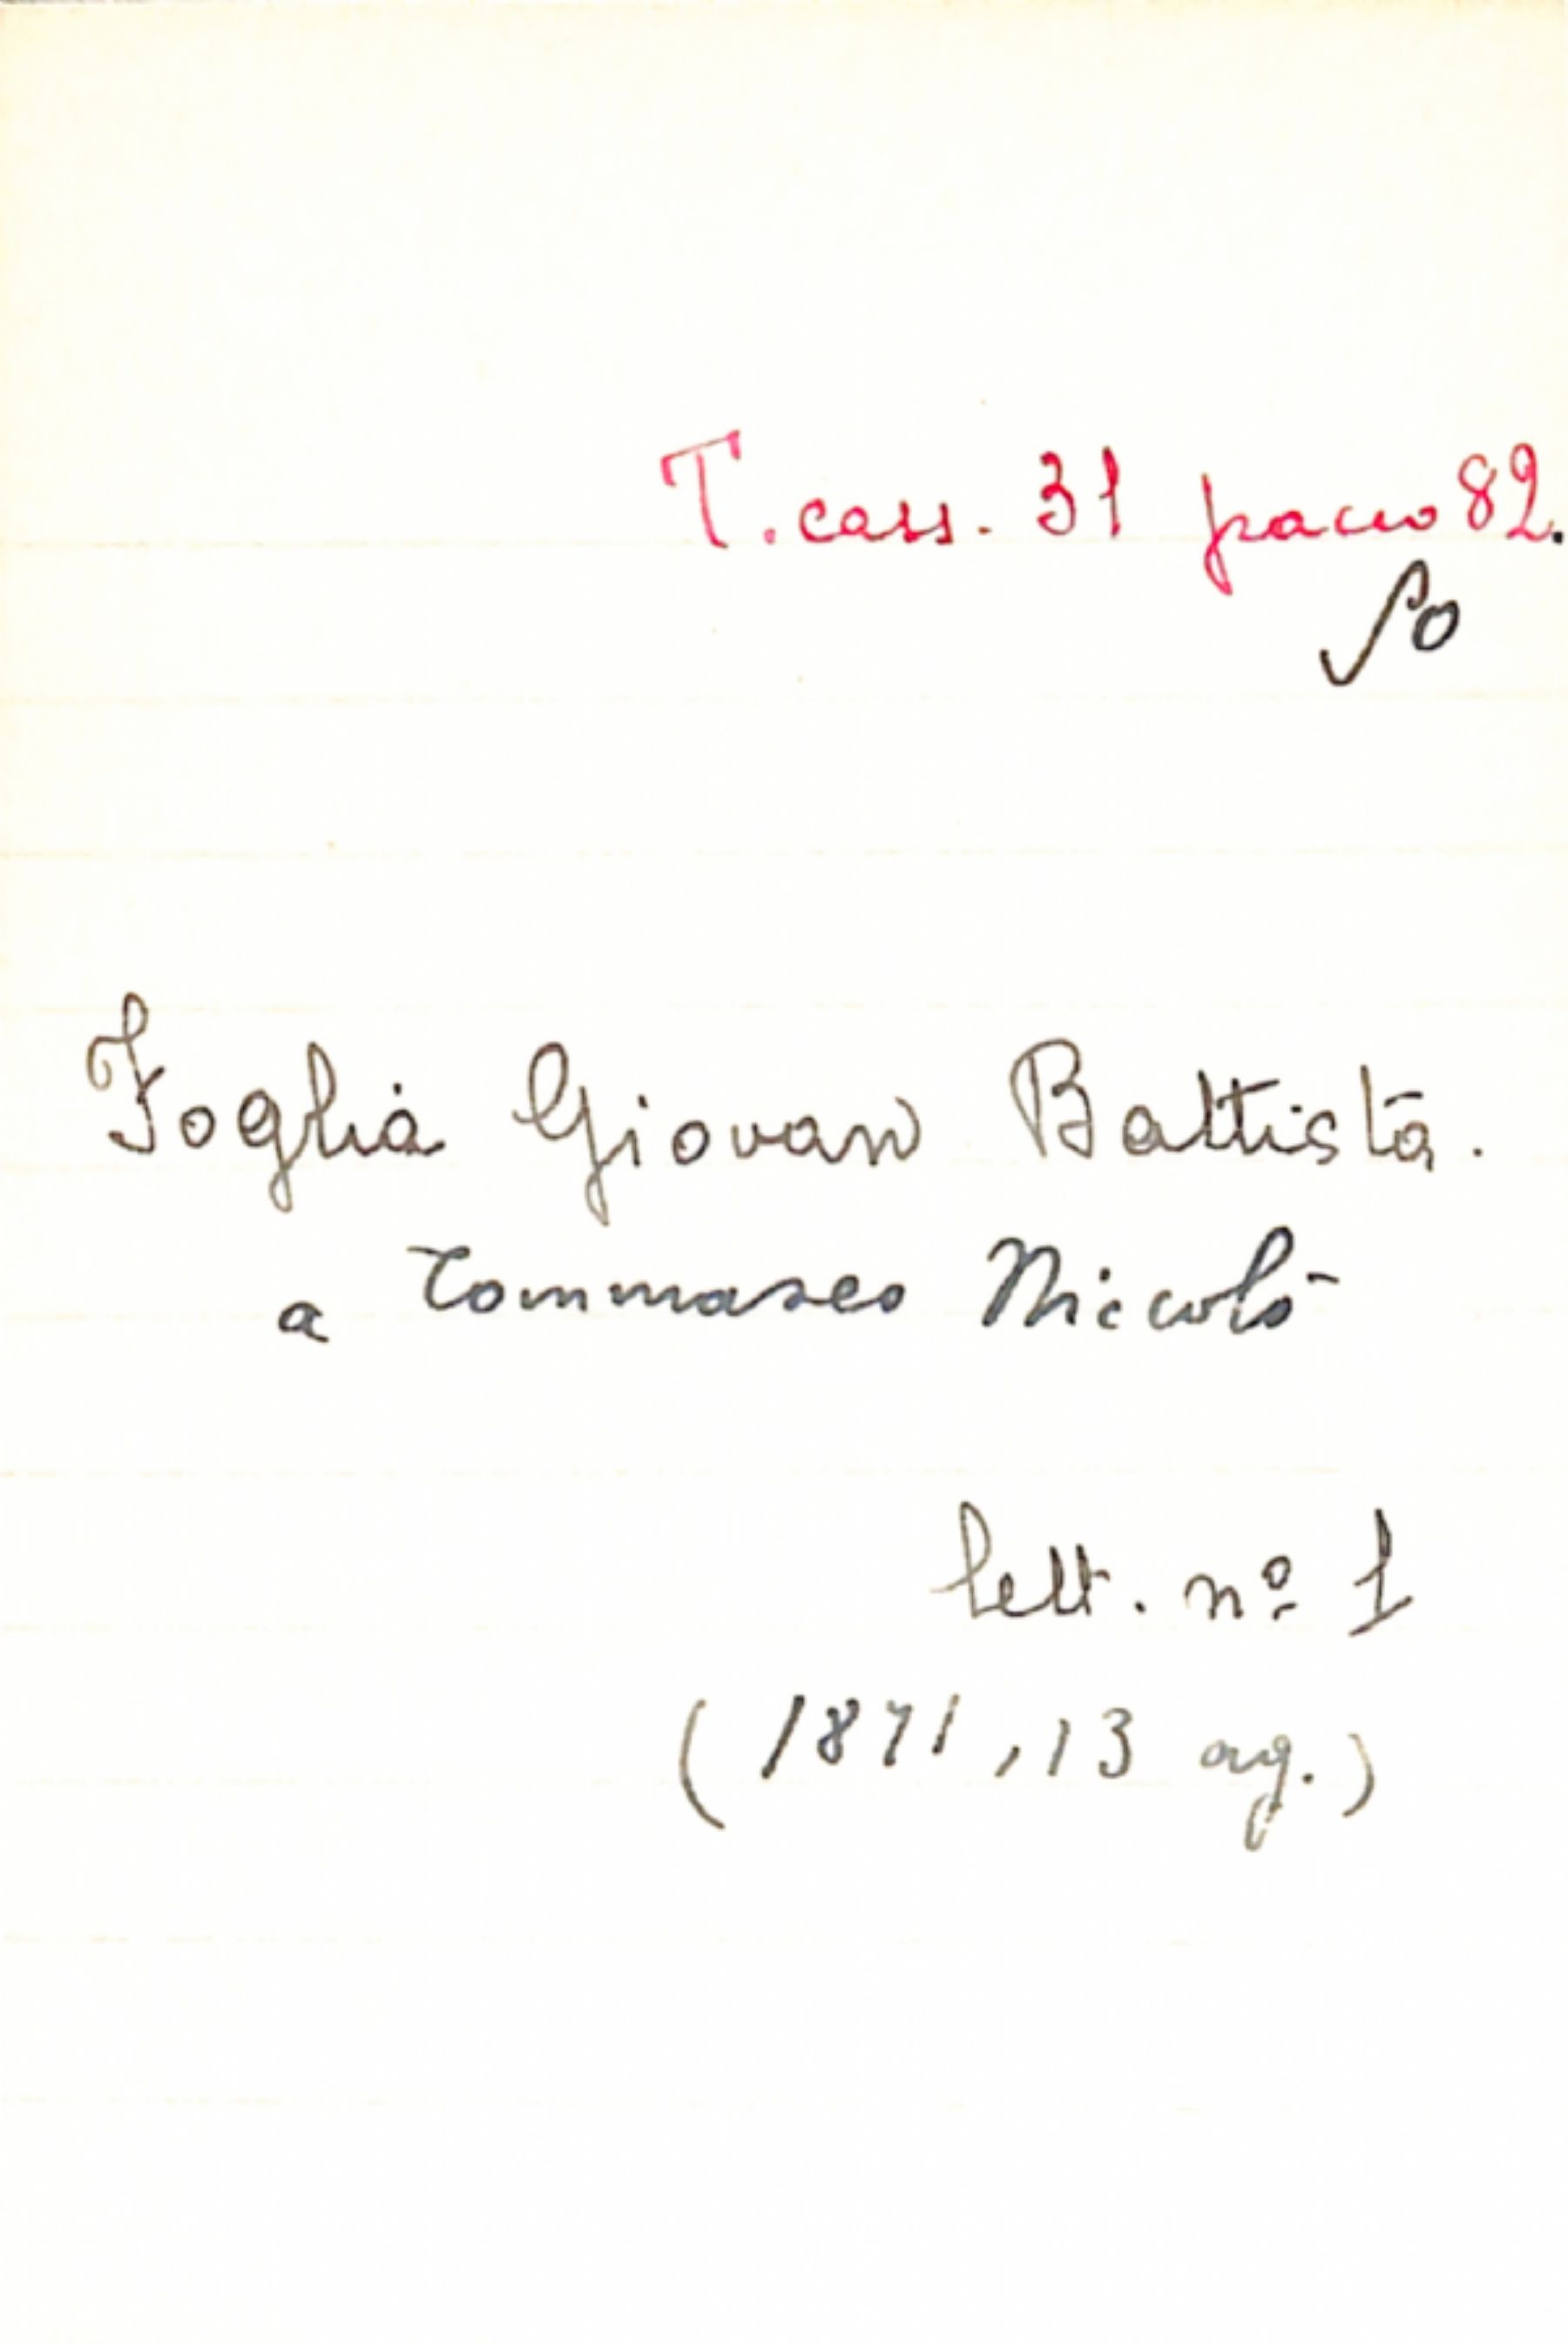 T. cass. 31 pacco 82.
50
Foglia Giovan Battista.
a Tommaseo Niccolò
lett. nº 1
(1871, 13 ag.)